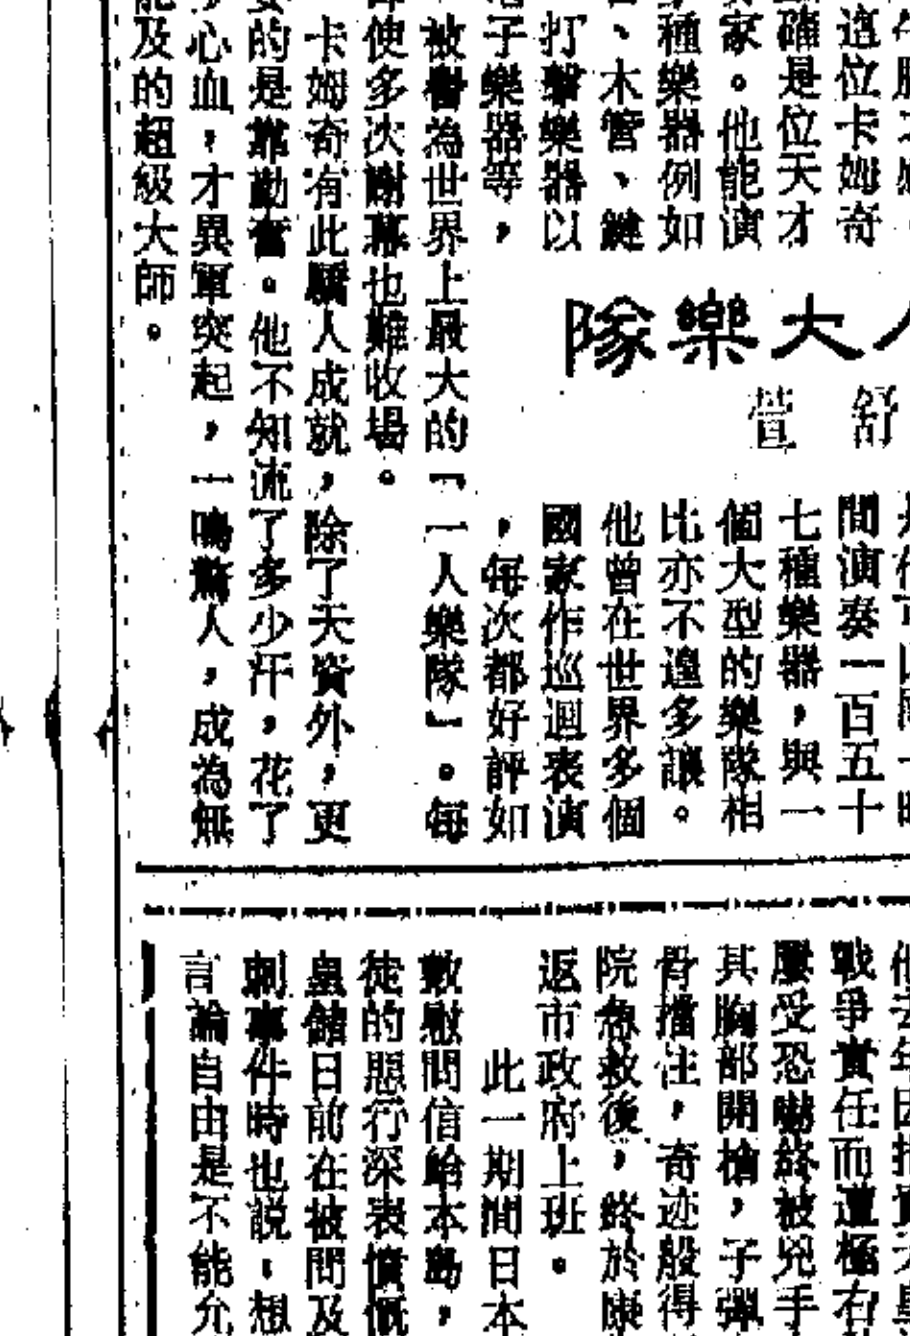 這位卡姆奇
確是位天才
家。他能演
種樂器例如
、木管、鍵
打擊樂器以
子樂器等，
人大樂隊
舒萱
間演奏一百五十
七種樂器，與一
個大型的樂隊相
比亦不遑多讓。
他曾在世界多個
國家作巡迴表演
，每次都好評如
被譽為世界上最大的「一人樂隊」。每
使多次謝幕也難收場。
卡姆奇有此驕人成就，除了天資外，更
的是靠勤奮。他不知流了多少汗，花了
心血，才異軍突起，一鳴驚人，成為無
及的超級大師。
他去年因指責天皇
戰爭責任而遭極右
屢受恐嚇終被兇手
其胸部開槍，子彈
骨擋住，奇迹般得
院急救後，終於康
返市政府上班。
此一期間日本
數慰問信給本島，
徒的惡行深表憤慨
皇儲日前在被問及
刺事件時也說：想
言論自由是不能允